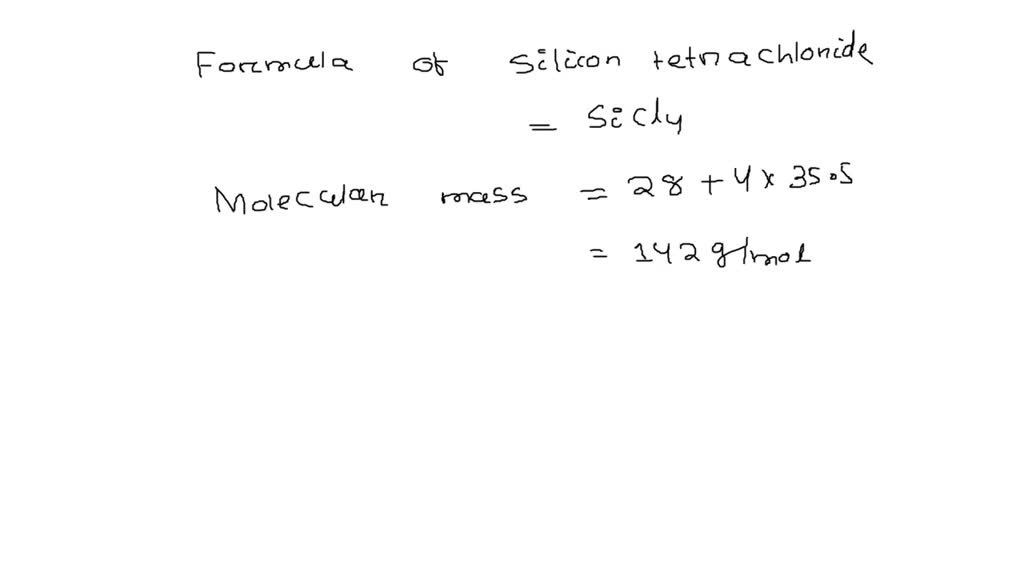 Formula of silicon tetrachloride
= SiCl4
Molecular mass = 28 + 4 x 35.5
= 142 g/mol